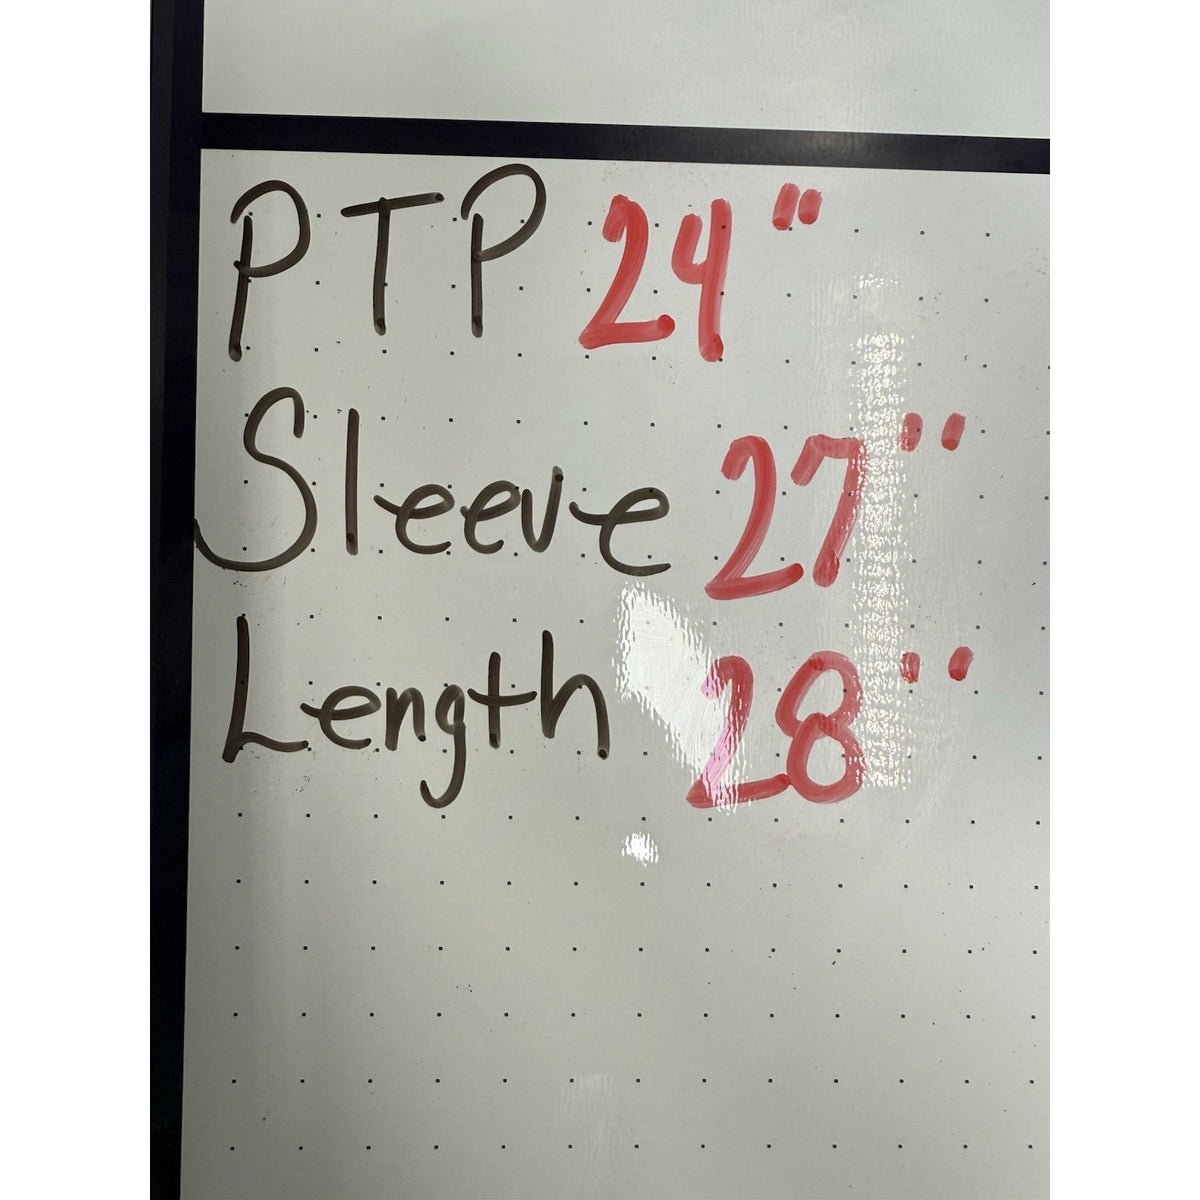 PTP 24"
Sleeve 27"
Length 28"